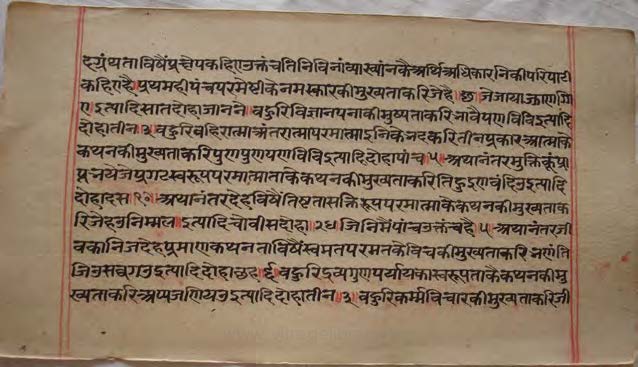 दग्रंथताविषैंप्रक्षेपकहिएउक्तंचतिनिविनांव्याख्यांनकैअर्थिअधिकारनिकीपरिपाटी
कहिएहै। प्रथमहीपंचपरमेष्टीकेनमस्कारकीमुख्यताकरिजेहै छ जेजायाझाणग्गि
ए इत्यादिसातदोहाजानने। बहुरिविज्ञापनाकीमुष्यताकरिनावैंपणविविइत्यादि
दोहातीन ३ बहुरिबहिरात्माअंतरात्मापरमात्माइनिकेभेदकरितीनप्रकारआत्माके
कथनकीमुख्यताकरिपुणपुणपणविविइत्यादिदोहापांच ५ अथानंतरमुक्तिकूंप्रा
प्तभयेजेप्रगटस्वरूपपरमात्माताकेकथनकीमुख्यताकरितिहुइणवंदिउइत्यादि
दोहादस १० अथानंतरदेहविषैंतिष्टतासक्तिरूपपरमात्माकेकथनकीमुख्यताक
रिजेहउनिम्मल इत्यादिचौवीसदोहा २४ जिनिमैंपांचउक्तंचहै ५ अथानंतरजी
वकानिजदेहप्रमाणकथनताविषैंस्वमतपरमतकेविचकीमुख्यताकरिभणंति
जिउसव्वगउइत्यादिदोहाछह ६ बहुरिद्रव्यगुणपर्यायकास्वरूपताकेकथनकीमु
ख्यताकरिअप्पाजणियउइत्यादिदोहातीन ३ बहुरिकर्म्मविचारकीमुख्यताकरिजी